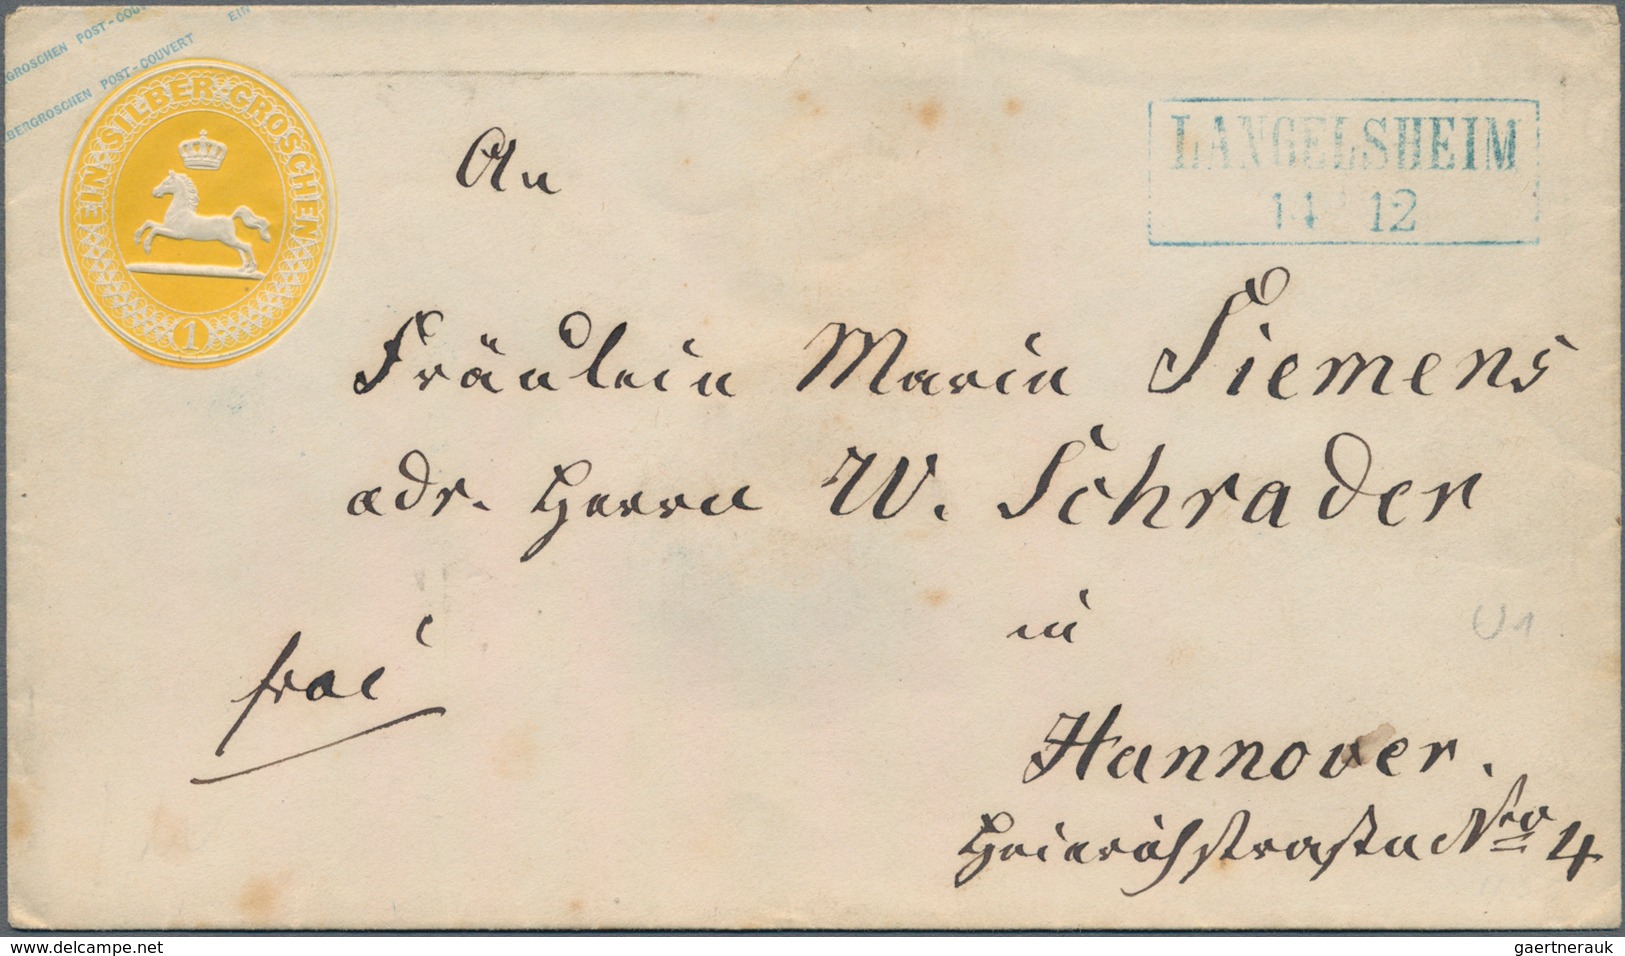 GROSCHEN POST-COU
EIN
BERGROSCHEN POST-COUVERT
EIN SILBER GROSCHEN
1
LANGELSHEIM
14 12
An
Fräulein Marie Siemens
adr. Herrn W. Schrader
frei
in
U1
Hannover.
Heinrichstraße Nro 4
www.delcampe.net
gaertnerauk